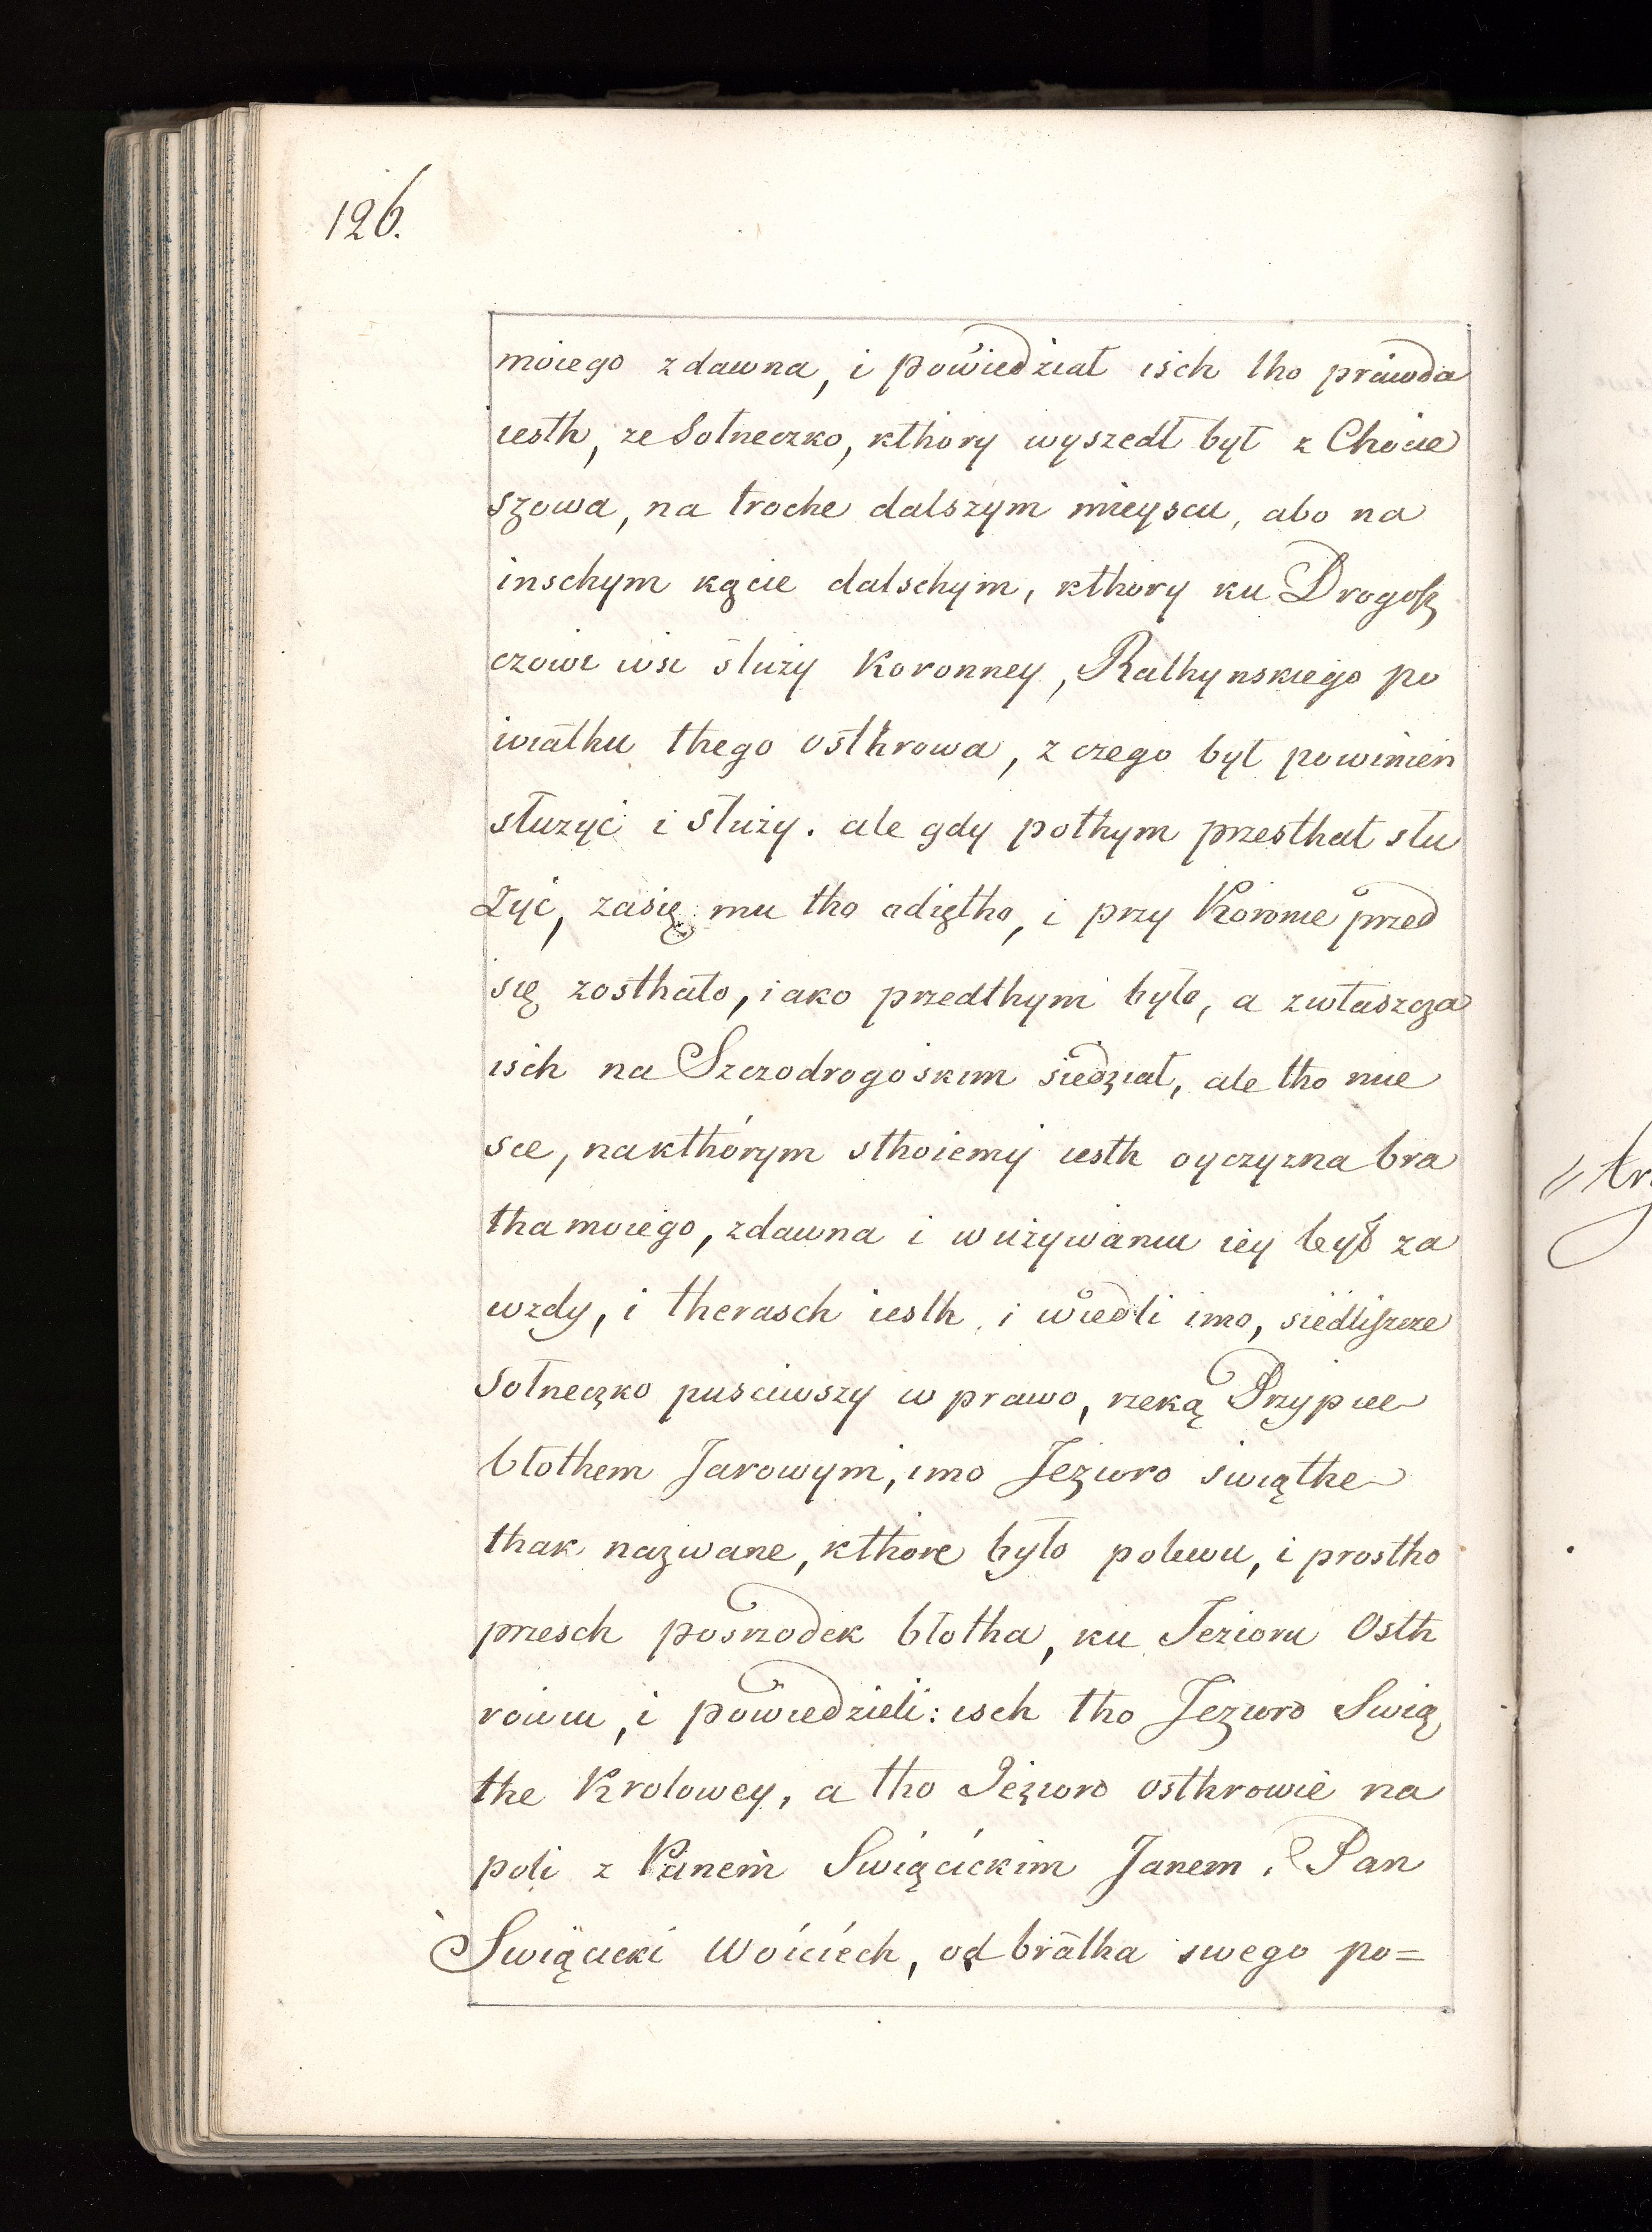 126.
moiego zdawna, i powiedział isch tho prawda
iesth, ze Sołneczko, kthory wyszedł był z Chocie
szowa, na troche dalszym mieyscu, abo na
inschym kącie dalschym, kthory ku Drogosz
czowi wsi służy Koronney, Rathynskiego po
wiathu thego osthrowa, z czego był powinien
służyć i służy. ale gdy pothym przesthał słu
żyć, zasię mu tho odiętho, i przy Koronie przed
się zosthało, iako przedthym było, a zwłaszcza
isch na Szczodrogoskim siedział, ale tho mie
sce, na kthórym sthoiemy iesth oyczyzna bra
tha moiego, zdawna i w używaniu iey był za
wzdy, i therasch iesth, i wiedli imo, siedliszcze
Sołneczko puściwszy w prawo, rzeką Przypiee
błothem Jarowym, imo Jezioro świąthe
thak nazwane, kthore było polewu, i prostho
przesch pośrzodek błotha, ku Jezioru Osth
rowiu, i powiedzieli: isch tho Jezioro Swią
the Krolowey, a tho Jezioro osthrowie na
poli z Panem Swiącickim Janem. Pan
Swiącicki Woiciech, od bratha swego po=
//tr